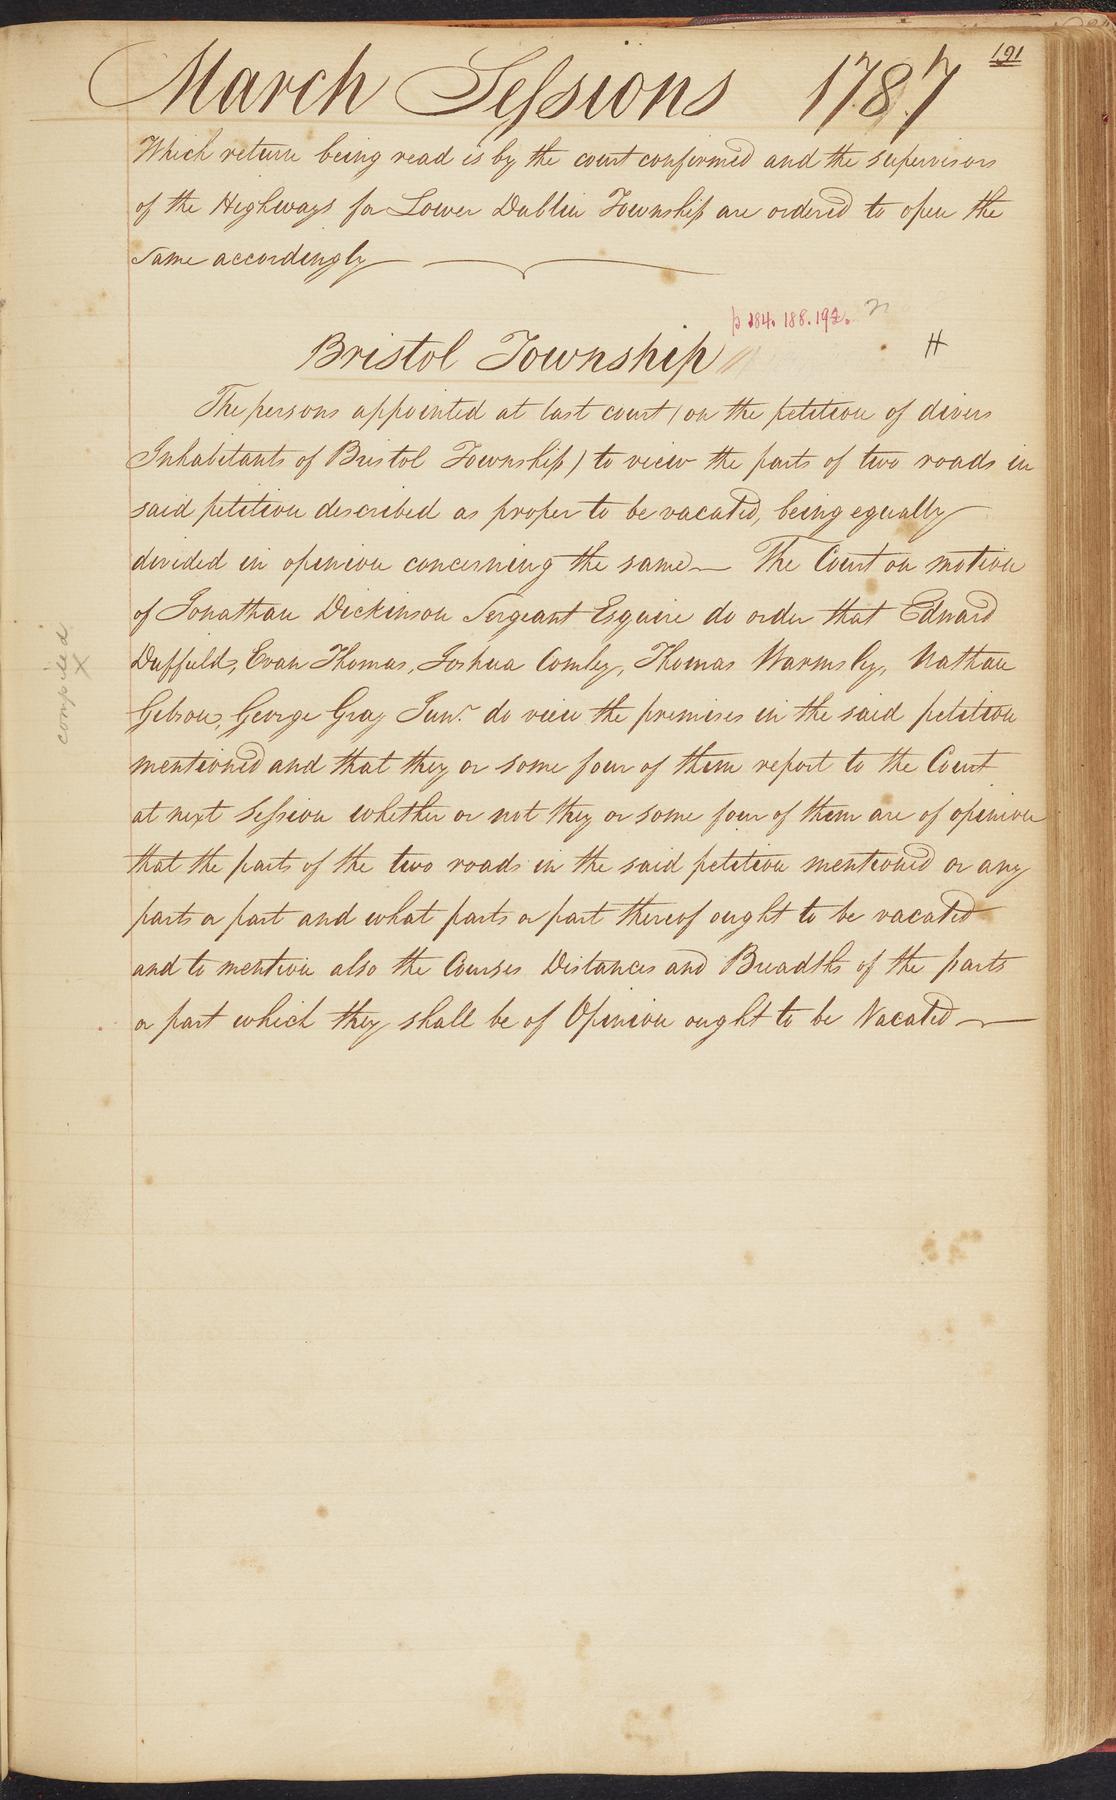 191
March Sessions 1787
Which return being read is by the court confirmed and the supervisors
of the Highways for Lower Dublin Township are ordered to open the
same accordingly
p 184. 188. 192.
Bristol Township
H
The persons appointed at last court (on the petition of divers
Inhabitants of Bristol Township) to view the parts of two roads in
said petition described as proper to be vacated, being equally
divided in opinion concerning the same — The Court on motion
of Jonathan Dickinson Sergeant Esquire do order that Edward
Duffield, Evan Thomas, Joshua Comly, Thomas Warmsly, Nathan
Gibson, George Gray Junr. do view the premises in the said petition
mentioned and that they or some four of them report to the Court
at next Session whether or not they or some four of them are of opinion
that the parts of the two roads in the said petition mentioned or any
parts or part and what parts or part thereof ought to be vacated
and to mention also the Courses Distances and Breadths of the parts
or part which they shall be of Opinion ought to be Vacated —
compiled
X